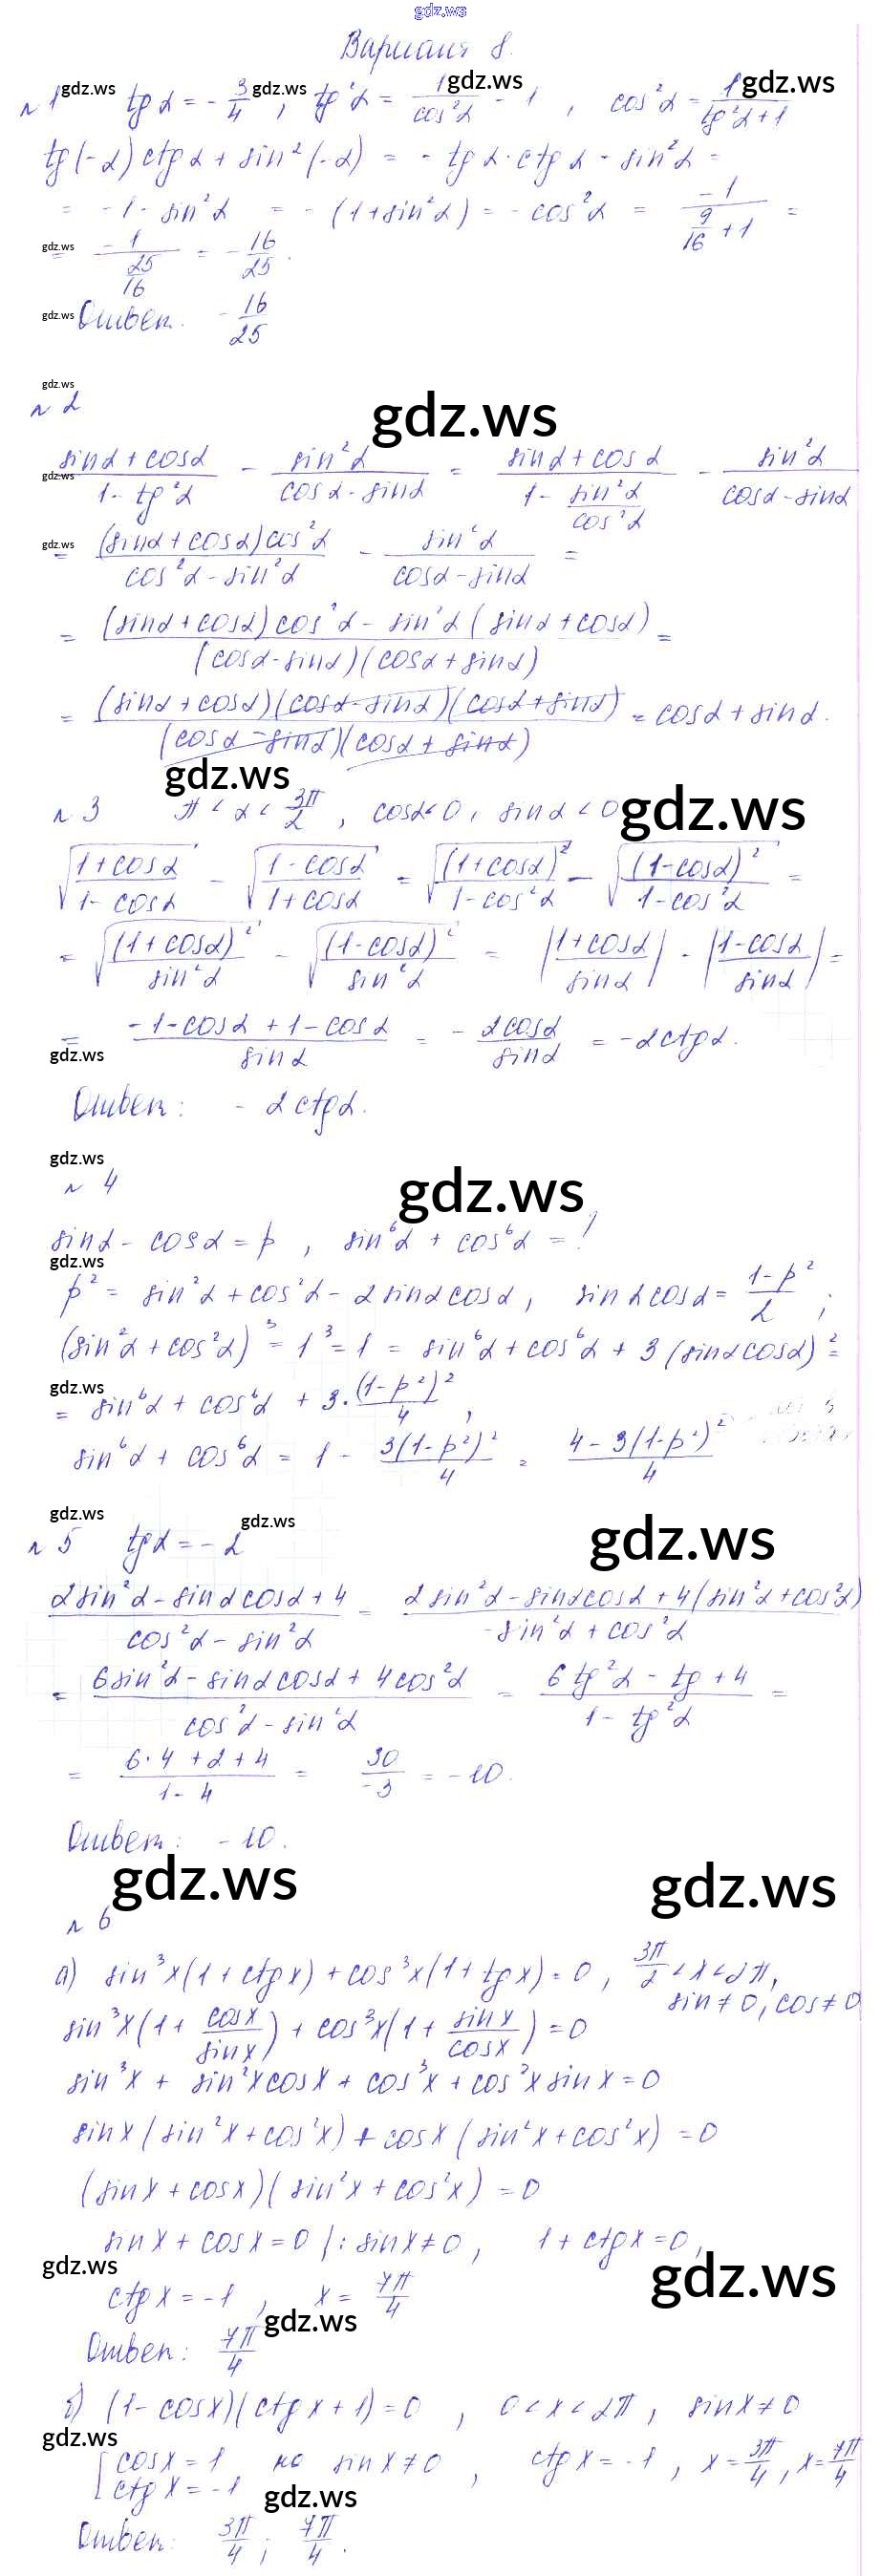 gdz.ws
Вариант 8.
№1 gdz.ws tg α = -3/4 gdz.ws , tg²α = 1/cos²α - 1 gdz.ws , cos²α = 1/(tg²α + 1) gdz.ws
tg(-α) ctg α + sin²(-α) = - tg α · ctg α - sin²α =
= -1 - sin²α = -(1 + sin²α) = - cos²α = -1/(9/16 + 1) =
gdz.ws = -1/(25/16) = -16/25.
gdz.ws Ответ. -16/25
gdz.ws
№2
gdz.ws
(sin α + cos α)/(1 - tg²α) - sin²α/(cos α - sin α) = (sin α + cos α)/(1 - sin²α/cos²α) - sin²α/(cos α - sin α)
gdz.ws
gdz.ws = (sin α + cos α) cos²α/(cos²α - sin²α) - sin²α/(cos α - sin α) =
= ((sin α + cos α) cos²α - sin²α (sin α + cos α))/((cos α - sin α)(cos α + sin α)) =
= (sin α + cos α)(cos α - sin α)(cos α + sin α)/((cos α - sin α)(cos α + sin α)) = cos α + sin α.
gdz.ws
№3 π < α < 3π/2 , cos α < 0, sin α < 0 gdz.ws
√((1 + cos α)/(1 - cos α)) - √((1 - cos α)/(1 + cos α)) = √((1 + cos α)²/(1 - cos²α)) - √((1 - cos α)²/(1 - cos²α)) =
= √((1 + cos α)²/sin²α) - √((1 - cos α)²/sin²α) = |(1 + cos α)/sin α| - |(1 - cos α)/sin α| =
= (-1 - cos α + 1 - cos α)/sin α = - 2cos α/sin α = -2ctg α.
gdz.ws
Ответ: - 2 ctg α.
gdz.ws
№4
gdz.ws
sin α - cos α = p , sin⁶α + cos⁶α = ?
gdz.ws
p² = sin²α + cos²α - 2 sin α cos α, sin α cos α = (1 - p²)/2 ;
(sin²α + cos²α)³ = 1³ = 1 = sin⁶α + cos⁶α + 3 (sin α cos α)² =
gdz.ws
= sin⁶α + cos⁶α + 3 · (1 - p²)²/4 ,
sin⁶α + cos⁶α = 1 - 3(1 - p²)²/4 = (4 - 3(1 - p²)²)/4
gdz.ws
№5 tg α = -2 gdz.ws
gdz.ws
(2 sin²α - sin α cos α + 4)/(cos²α - sin²α) = (2 sin²α - sin α cos α + 4(sin²α + cos²α))/(-sin²α + cos²α)
= (6 sin²α - sin α cos α + 4 cos²α)/(cos²α - sin²α) = (6 tg²α - tg + 4)/(1 - tg²α) =
= (6·4 + 2 + 4)/(1 - 4) = 30/-3 = -10.
Ответ: -10.
gdz.ws
gdz.ws
№6
а) sin³x(1 + ctg x) + cos³x(1 + tg x) = 0, 3π/2 < x < 2π,
sin ≠ 0, cos ≠ 0
sin³x(1 + cos x/sin x) + cos³x(1 + sin x/cos x) = 0
sin³x + sin²x cos x + cos³x + cos²x sin x = 0
sin x (sin²x + cos²x) + cos x (sin²x + cos²x) = 0
(sin x + cos x)(sin²x + cos²x) = 0
sin x + cos x = 0 |: sin x ≠ 0, 1 + ctg x = 0,
gdz.ws
gdz.ws
ctg x = -1 , x = 7π/4
gdz.ws
Ответ: 7π/4
б) (1 - cos x)(ctg x + 1) = 0 , 0 < x < 2π, sin x ≠ 0
gdz.ws
[ cos x = 1 но sin x ≠ 0 , ctg x = -1 , x = 3π/4 , x = 7π/4
ctg x = -1
gdz.ws
Ответ: 3π/4 ; 7π/4.